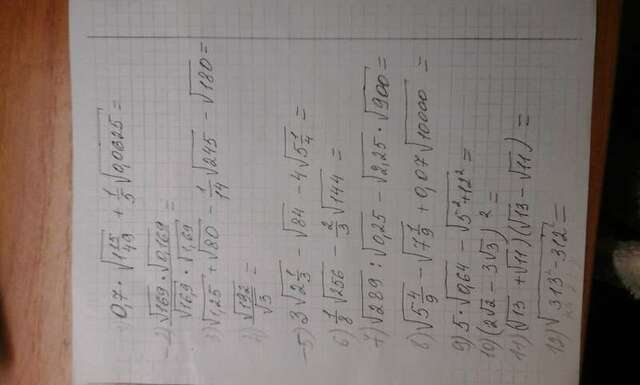 1) 0,7 · √1 15/49 + 1/5 √0,0625 =
2) √169 · √0,169 / √16,9 · √1,69 =
3) √1,25 + √80 - 1/14 √245 - √180 =
4) √192 / √3 =
5) 3√2 1/3 - √84 - 4√5 1/4 =
6) 1/8 √256 - 2/3 √144 =
7) √289 : √0,25 - √2,25 · √900 =
8) √5 4/9 - √7 1/9 + 0,07 √10000 =
9) 5 · √0,64 - √5² + 12² =
10) (2√2 - 3√3)² =
11) (√13 + √11)(√13 - √11) =
12) √313² - 312² =